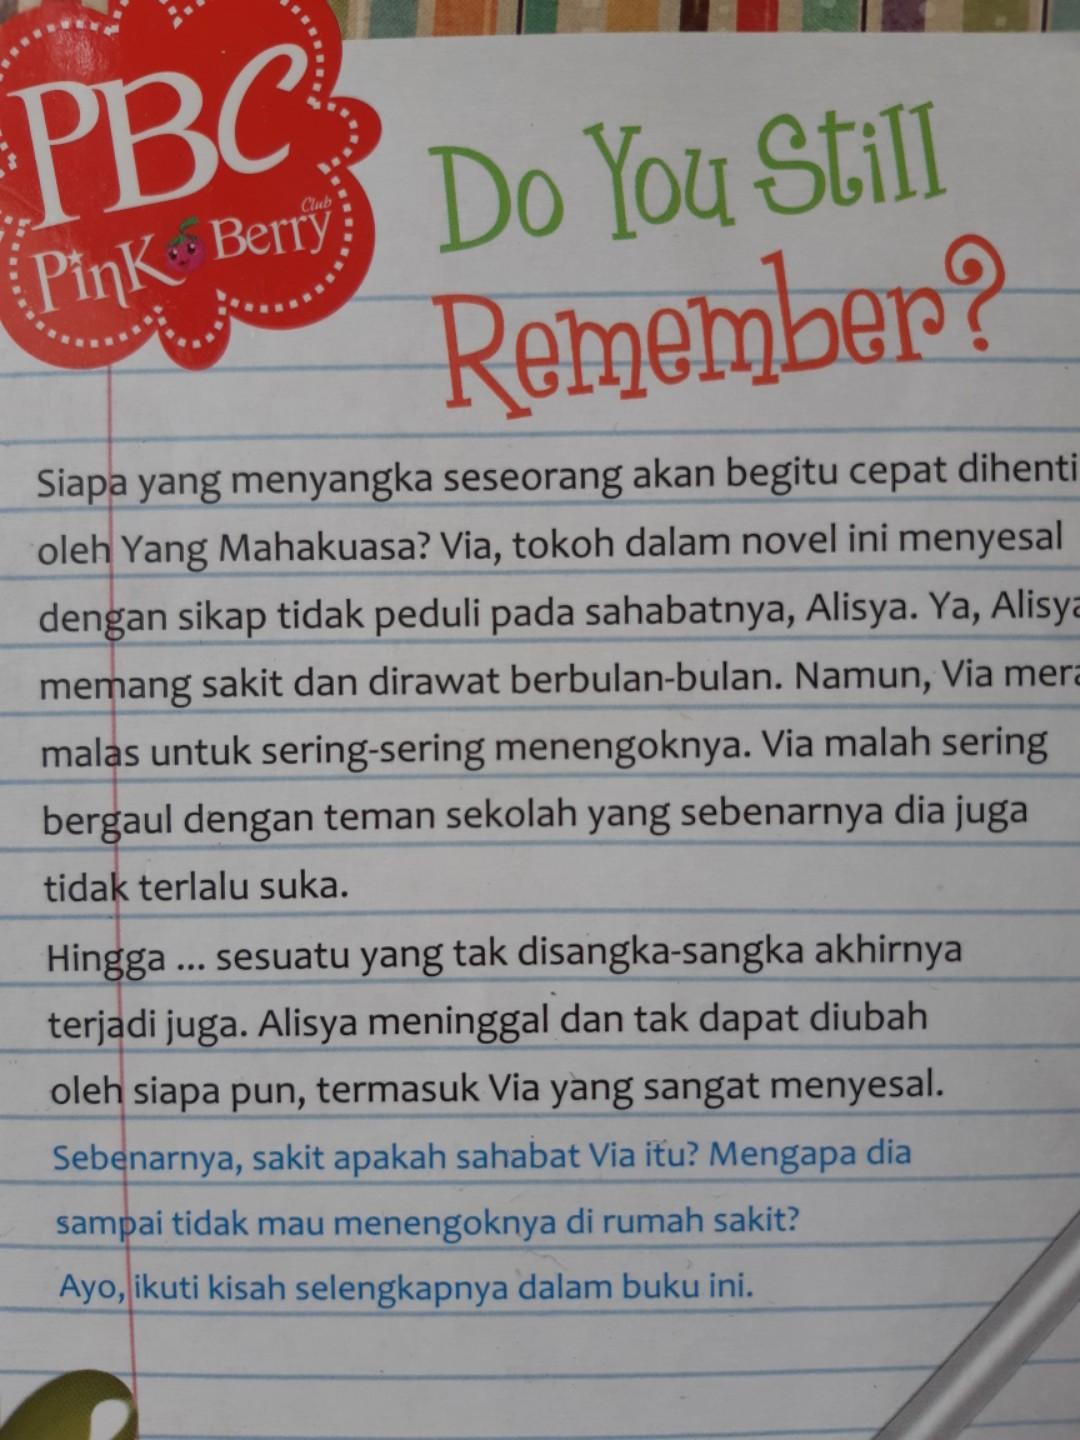 PBC
Pink Berry Club
Do You Still
Remember?
Siapa yang menyangka seseorang akan begitu cepat dihenti
oleh Yang Mahakuasa? Via, tokoh dalam novel ini menyesal
dengan sikap tidak peduli pada sahabatnya, Alisya. Ya, Alisya
memang sakit dan dirawat berbulan-bulan. Namun, Via mera
malas untuk sering-sering menengoknya. Via malah sering
bergaul dengan teman sekolah yang sebenarnya dia juga
tidak terlalu suka.
Hingga ... sesuatu yang tak disangka-sangka akhirnya
terjadi juga. Alisya meninggal dan tak dapat diubah
oleh siapa pun, termasuk Via yang sangat menyesal.
Sebenarnya, sakit apakah sahabat Via itu? Mengapa dia
sampai tidak mau menengoknya di rumah sakit?
Ayo, ikuti kisah selengkapnya dalam buku ini.